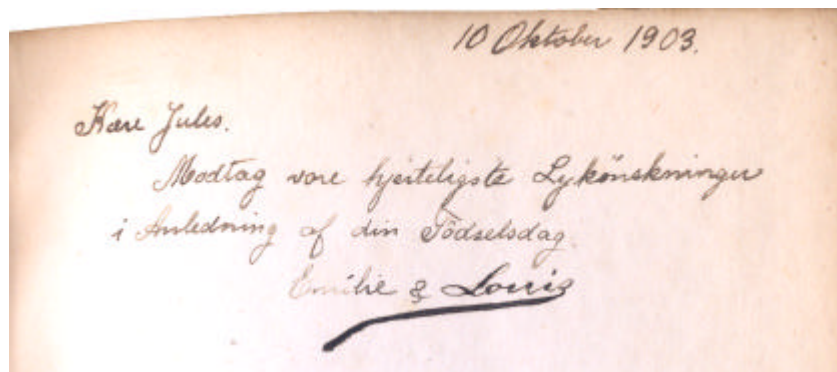 10 Oktober 1903.
Kære Jules.
Modtag vore hjerteligste Lykönskninger
i Anledning af din Födselsdag.
Emilie & Louis